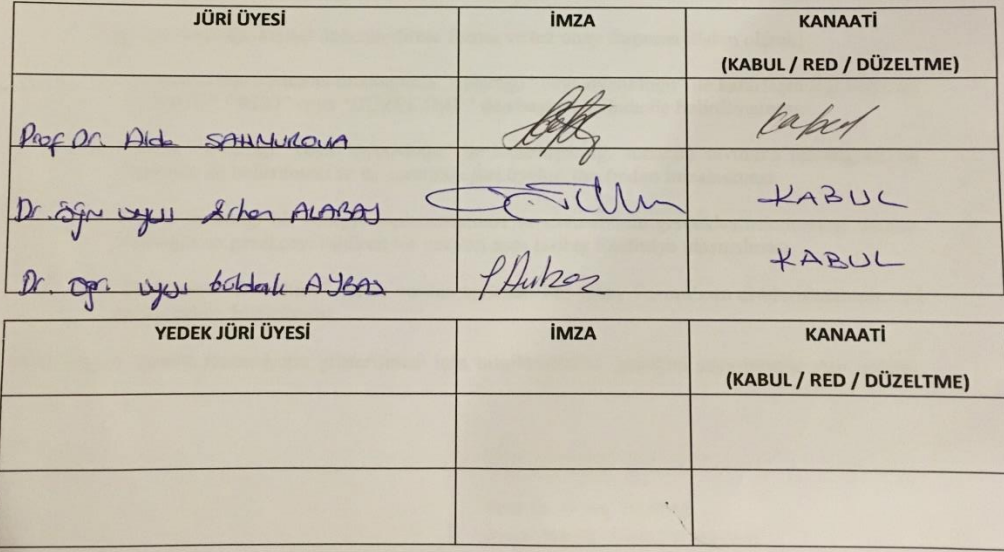 JÜRİ ÜYESİ İMZA KANAATİ
(KABUL / RED / DÜZELTME)
Prof Dr. Aida SAHMUROVA kabul
Dr. öğr üyesi ALABAŞ KABUL
Dr. öğr. üyesi AYBAŞ KABUL
YEDEK JÜRİ ÜYESİ İMZA KANAATİ
(KABUL / RED / DÜZELTME)